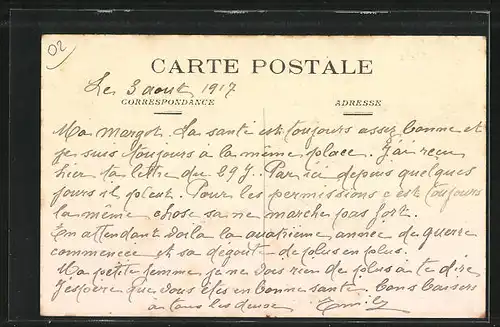 02
CARTE POSTALE
Le 3 aout 1917
CORRESPONDANCE
ADRESSE
Ma Margot. La santé est toujours assez bonne et
je suis toujours à la même place. J'ai reçu
hier ta lettre du 29 J. Par ici depuis quelques
jours il pleut. Pour les permissions c'est toujours
la même chose sa ne marche pas fort.
En attendant voilà la quatrième année de guerre
commencée et sa dégoute de plus en plus.
Ma petite femme je ne vois rien de plus à te dire
J'espère que vous êtes en bonne santé. Bons baisers
à tous les deux Emile